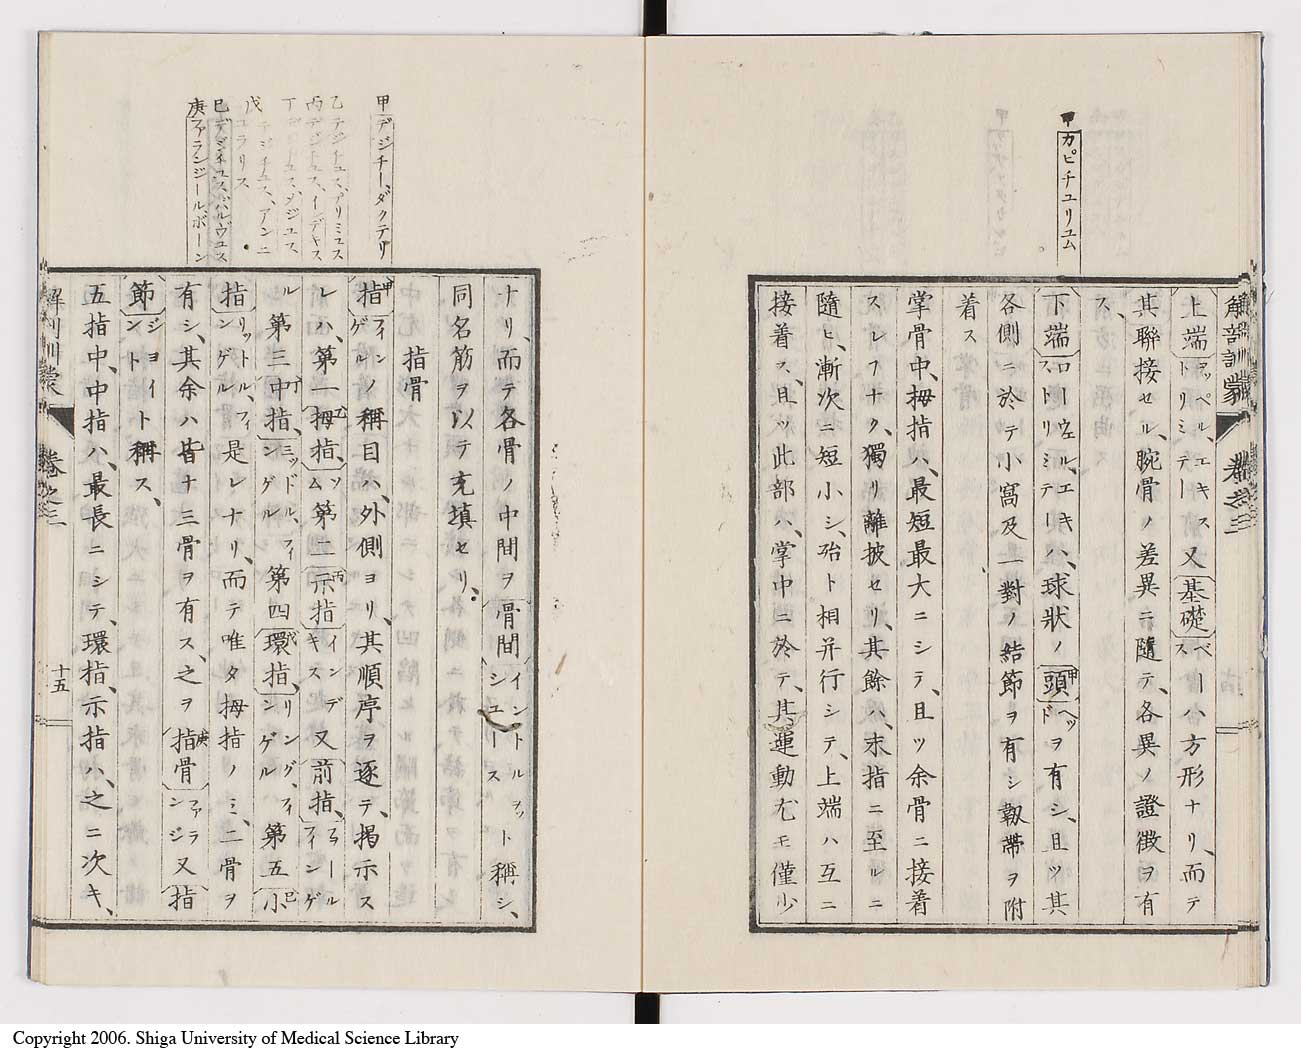 甲カピチユリユム
解剖訓蒙 卷之二
上端アッペル、エキストリミテー又基礎ベースハ方形ナリ、而テ
其聯接セル、腕骨ノ差異ニ隨テ、各異ノ證徴ヲ有
ス、
下端ローウェル、エキストリミテーハ、球状ノ頭甲ヘッドヲ有シ、且ツ其
各側ニ於テ小窩及一對ノ結節ヲ有シ靱帯ヲ附
着ス
掌骨中、拇指ハ、最短最大ニシテ、且ツ余骨ニ接着
スレフナク、獨リ離披セリ、其餘ハ、末指ニ至ルニ
隨ヒ、漸次ニ短小シ、殆ト相并行シテ、上端ハ互ニ
接着ス、且ツ此部ハ、掌中ニ於テ、其運動尤モ僅少
甲デジチー、ダクテリ
乙デジチユス、プリミユス
丙デジチユス、インデキス
丁デジチユス、メジユス
戊デジチユス、アンニ
ユラリス
巳デジチユス、パルヴユス
庚ファランジールボーン
ナリ、而テ各骨ノ中間ヲ骨間イントルヲットシユースト稱シ、
同名筋ヲ以テ充填セリ、
指骨
指甲フィンゲルノ稱目ハ、外側ヨリ、其順序ヲ逐テ、掲示ス
レハ、第一拇指乙ソム第二示指丙インデキス又前指フヲールフィンゲ
ル第三中指丁ミッドル、フィンゲル第四環指戊リング、フィンゲル第五小巳
指リットル、フィンゲル、是レナリ、而テ唯タ拇指ノミ、二骨ヲ
有シ、其余ハ皆ナ三骨ヲ有ス、之ヲ指骨庚ファランジ又指
節ジョイントト稱ス、
五指中、中指ハ、最長ニシテ、環指、示指ハ、之ニ次キ、
解剖訓蒙 卷之二 十五